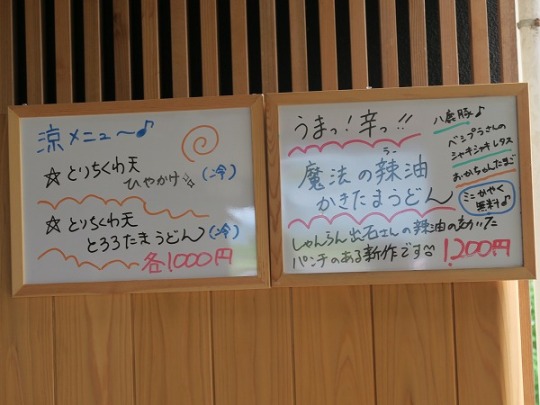 涼メニュ〜♪
☆とりちくわ天
ひやかけ☆(冷)
☆とりちくわ天
とろろたまうどん(冷)
各1000円
うまっ!辛っ!!
ラー
魔法の辣油
かきたまうどん
しゃんろん出石さんの辣油の効いた
パンチのある新作です♡
1,200円
八鹿豚♪
ベジプラさんの
シャキシャキレタス
おかちゃんたまご
ミニかやく
無料♪